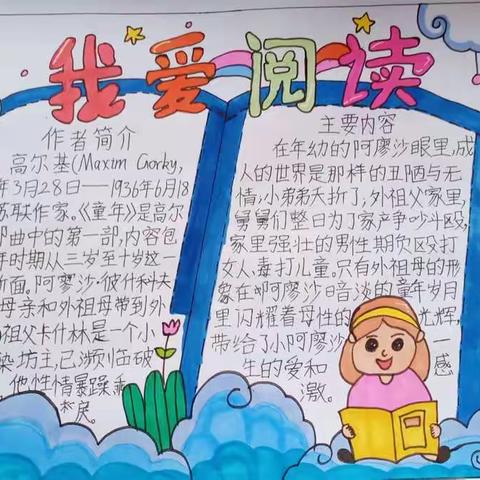 我爱阅读
作者简介
高尔基(Maxim Gorky,
年3月28日——1936年6月18
苏联作家。《童年》是高尔
部曲中的第一部,内容包
年时期从三岁至十岁这一
断面。阿廖沙·彼什科夫
母亲和外祖母带到外
祖父卡什林是一个小
染坊主,已濒临破
他性情暴躁乖
主要内容
在年幼的阿廖沙眼里,成
人的世界是那样的丑陋与无
情,小弟弟夭折了,外祖父家里,
舅舅们整日为了家产争吵斗殴,
家里强壮的男性期负殴打
女人,毒打儿童。只有外祖母的形
象在阿廖沙暗淡的童年岁月
里闪耀着母性的光辉,
带给了小阿廖沙一
生的爱和感
激。